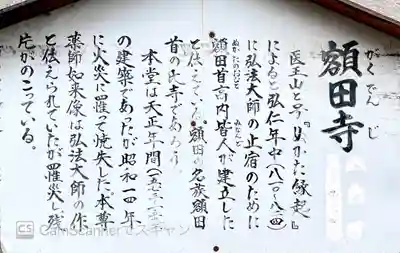 額田寺
がくでんじ
医王山と号し『ぬかた縁起』
によると弘仁年中(八一〇〜八二四)
に弘法大師の止宿のために
ぬかたのおびと
額田首高内皆人が建立した
と伝えている。額田の名族額田
首の氏寺であろう。
本堂は天正年間(一五七三〜
の建築であったが昭和一四年
に火災に罹って焼失した。本尊
薬師如来像は弘法大師の作
と伝えられていたが罹災し残
片がのこっている。
CS CamScannerでスキャン